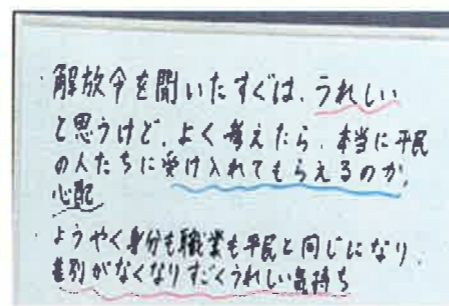 ・解放令を聞いたすぐは、うれしい
と思うけど、よく考えたら、本当に平民
の人たちに受け入れてもらえるのか、
心配
・ようやく身分も職業も平民と同じになり、
差別がなくなりすごくうれしい気持ち